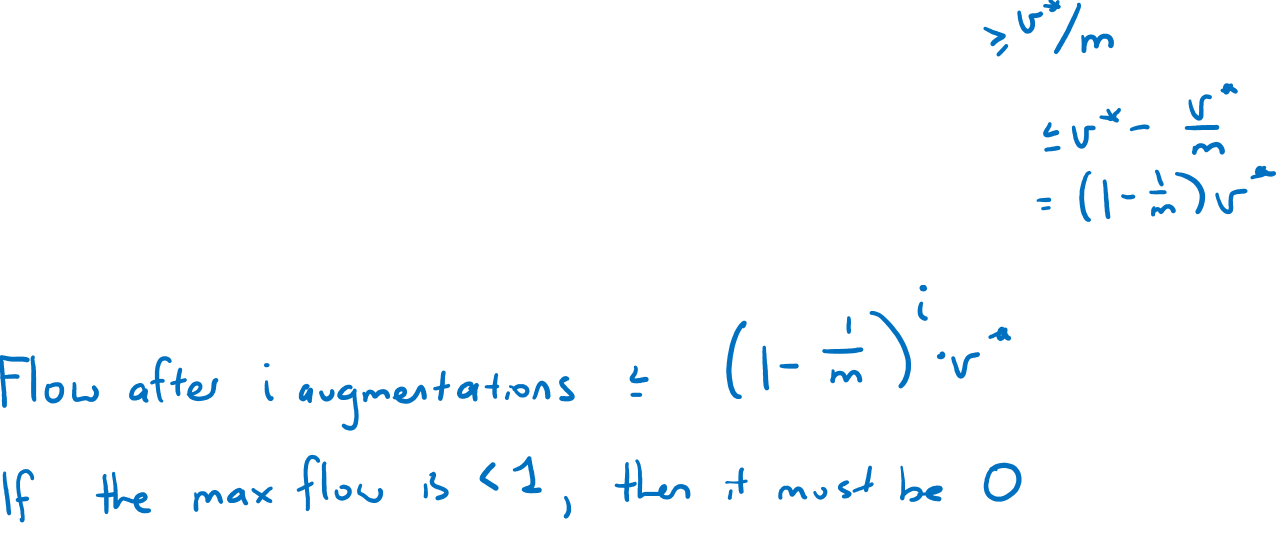 ≥ v*/m
≤ v* - v*/m
= (1 - 1/m) v*
Flow after i augmentations ≤ (1 - 1/m)^i · v*
If the max flow is < 1, then it must be 0